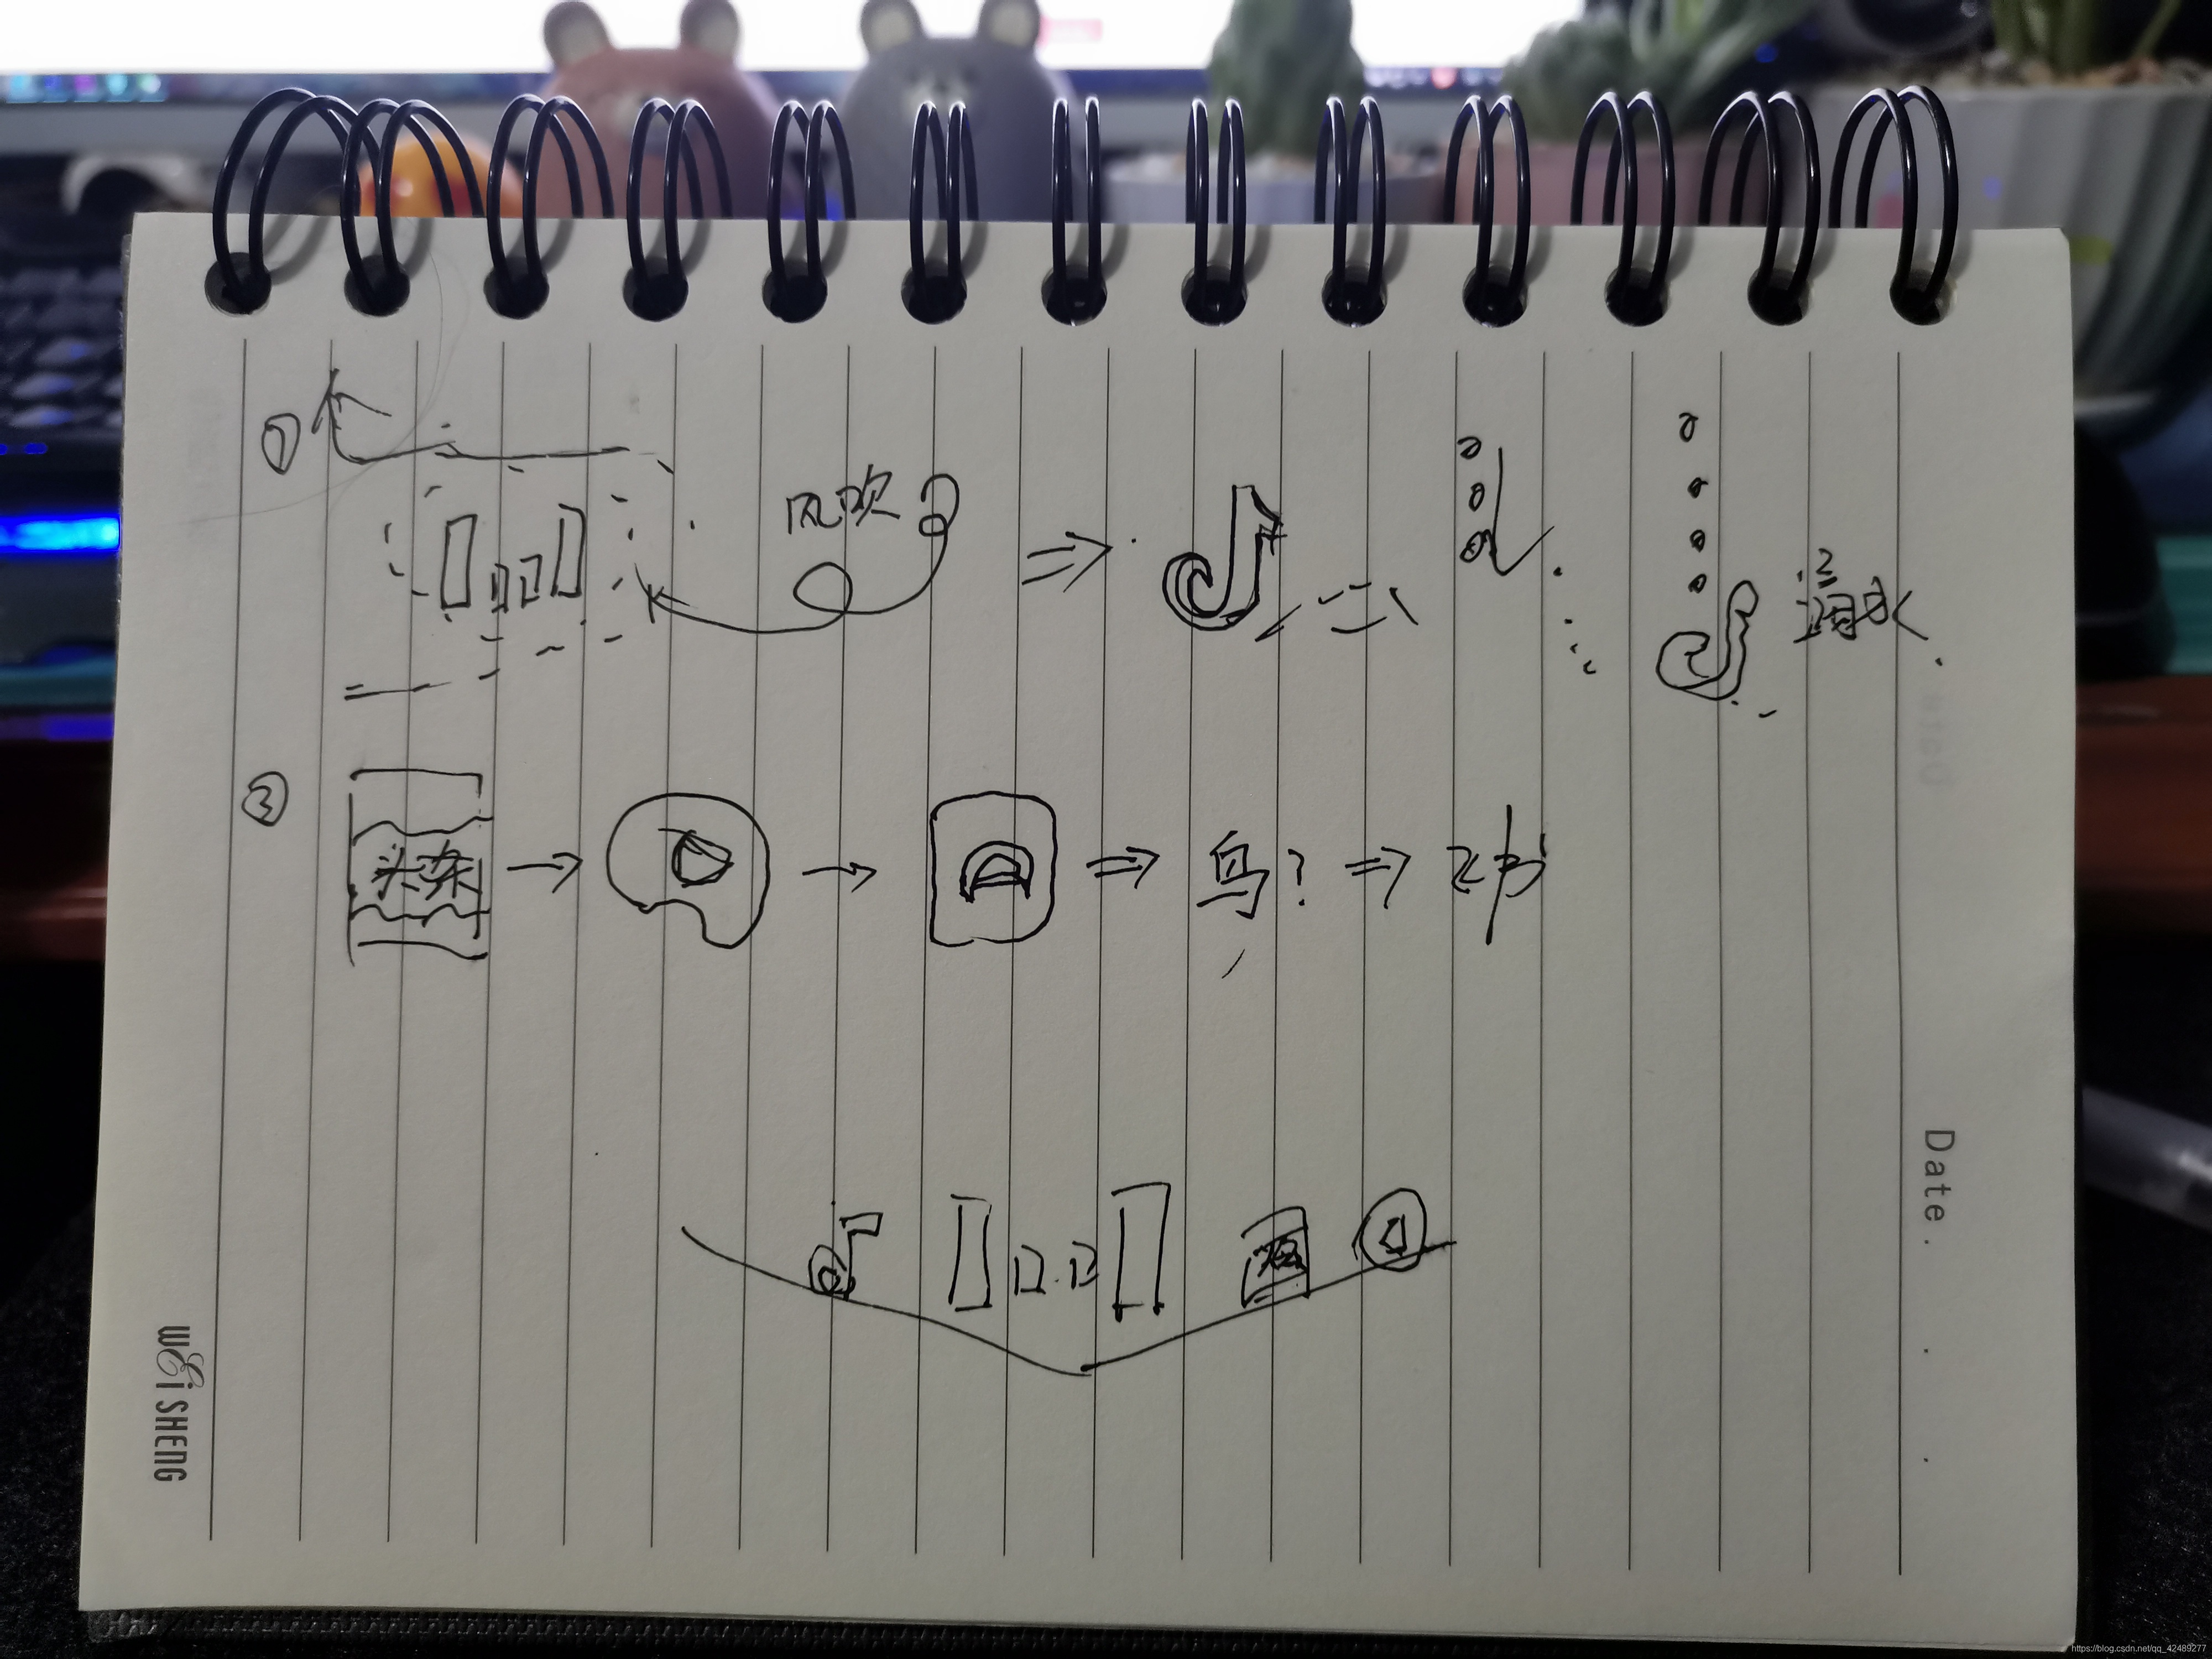 ①
风吹
海水
②
头条
鸟?
飞书
Date.
WEi SHENG
https://blog.csdn.net/qq_42489277